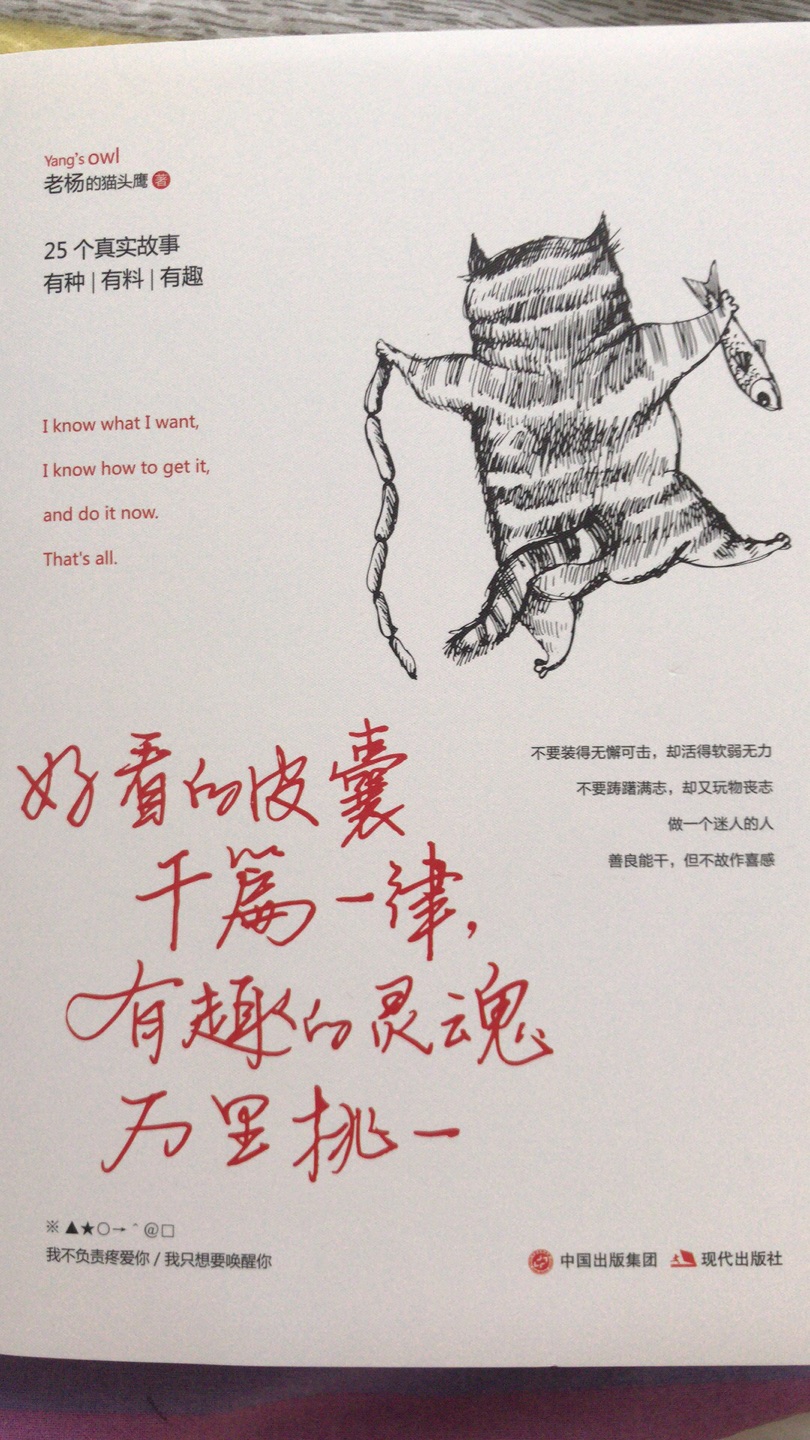 Yang's owl
老杨的猫头鹰 著
25 个真实故事
有种 | 有料 | 有趣
I know what I want,
I know how to get it,
and do it now.
That's all.
好看的皮囊
千篇一律，
有趣的灵魂
万里挑一
不要装得无懈可击，却活得软弱无力
不要踌躇满志，却又玩物丧志
做一个迷人的人
善良能干，但不故作喜感
※▲★○→＾@□
我不负责疼爱你 / 我只想要唤醒你
中国出版集团 现代出版社